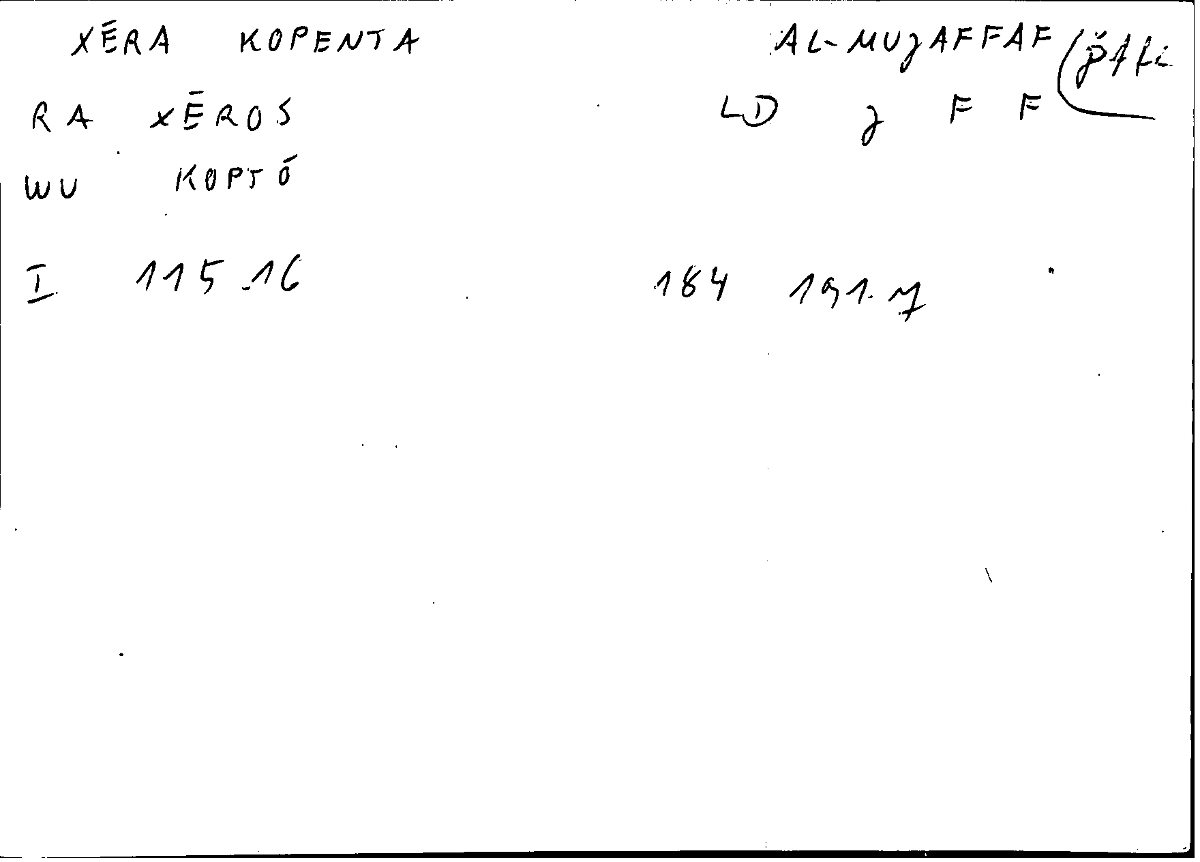 XĒRA KOPENTA AL-MUȷAFFAF
RA XĒROS LD ȷ F F
WU KOPTŌ
I 115.16 184 191.7